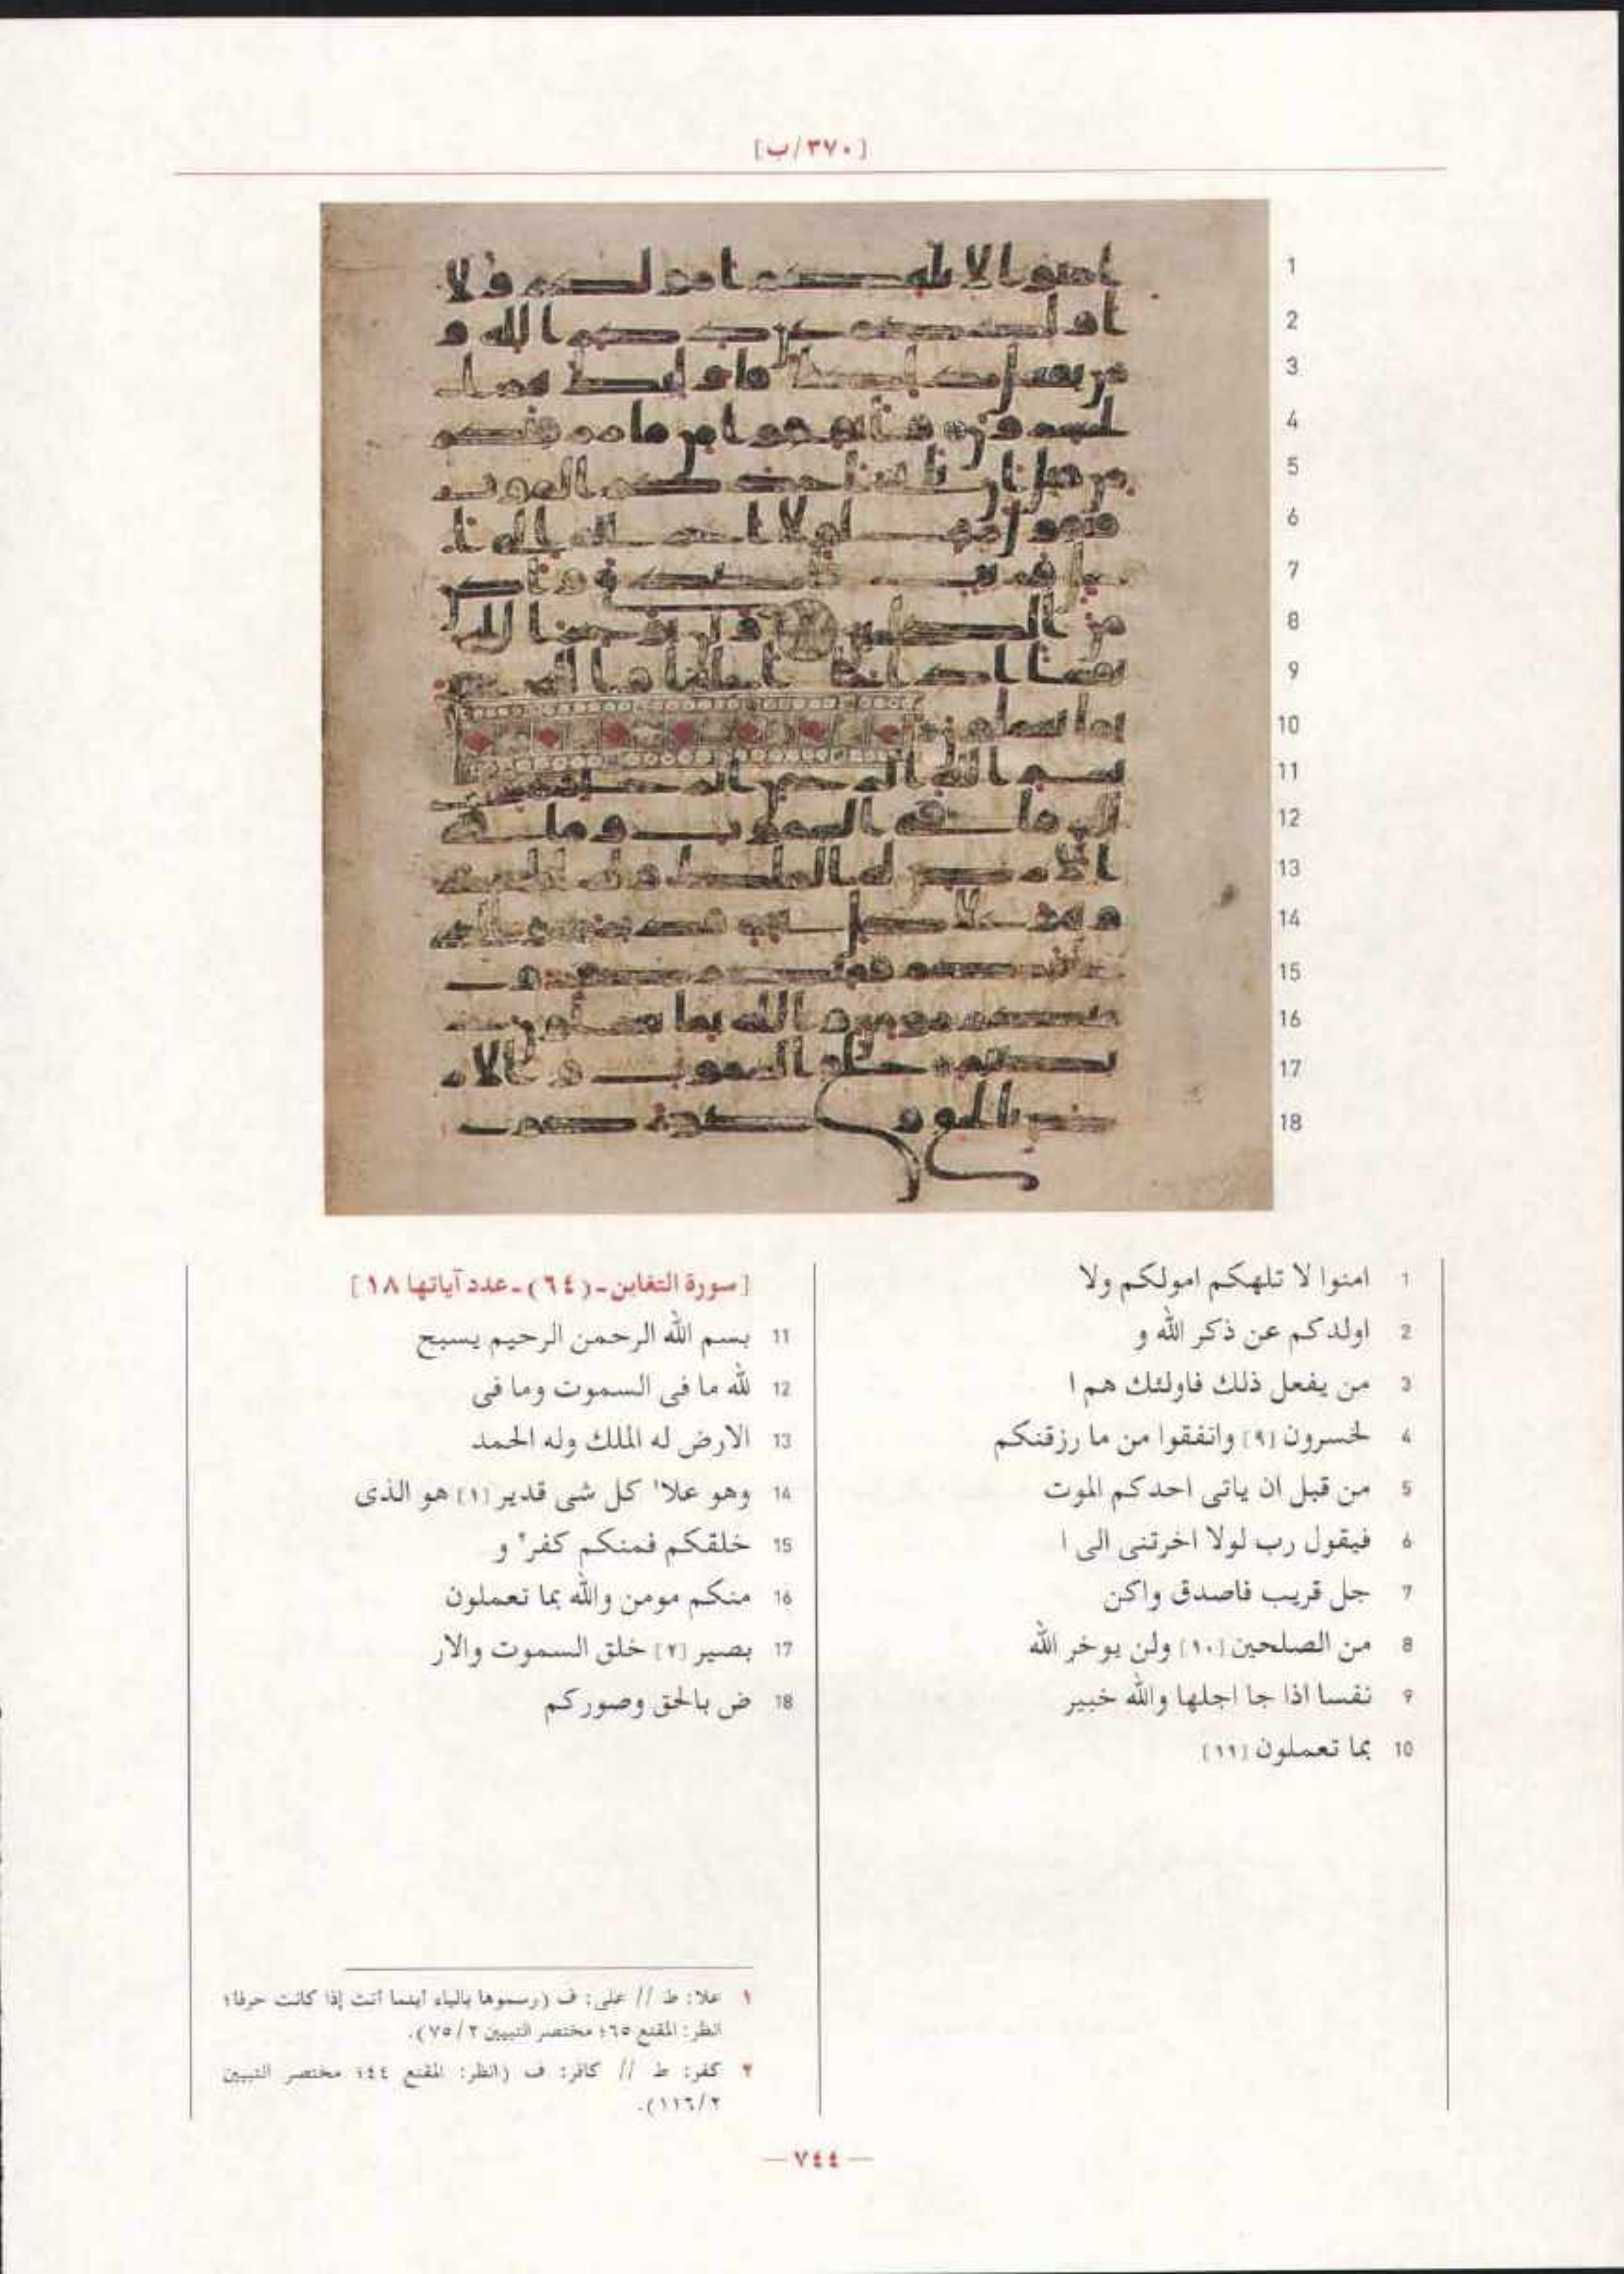 [٣٧٠/ب]
1
2
3
4
5
6
7
8
9
10
11
12
13
14
15
16
17
18
1 امنوا لا تلهكم امولكم ولا
2 اولدكم عن ذكر الله و
3 من يفعل ذلك فاولئك هم ا
4 لخسرون [٩] وانفقوا من ما رزقنكم
5 من قبل ان ياتى احدكم الموت
6 فيقول رب لولا اخرتنى الى ا
7 جل قريب فاصدق واكن
8 من الصلحين [١٠] ولن يوخر الله
9 نفسا اذا جا اجلها والله خبير
10 بما تعملون [١١]
[سورة التغابن - (٦٤) - عدد آياتها ١٨]
11 بسم الله الرحمن الرحيم يسبح
12 لله ما فى السموت وما فى
13 الارض له الملك وله الحمد
14 وهو علا١ كل شى قدير [١] هو الذى
15 خلقكم فمنكم كفر٢ و
16 منكم مومن والله بما تعملون
17 بصير [٢] خلق السموت والار
18 ض بالحق وصوركم
١ علا: ط // على: ف (رسموها بالياء أينما أتت إذا كانت حرفا؛
انظر: المقنع ٦٥؛ مختصر التبيين ٢/ ٧٥).
٢ كفر: ط // كافر: ف (انظر: المقنع ٤٤؛ مختصر التبيين
٢/ ١١٦).
— ٧٤٤ —